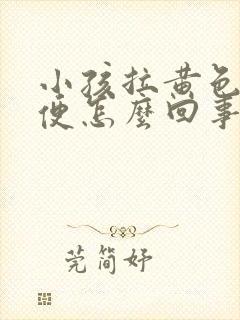 小孩拉黄色
便怎麼回事
莞简妤